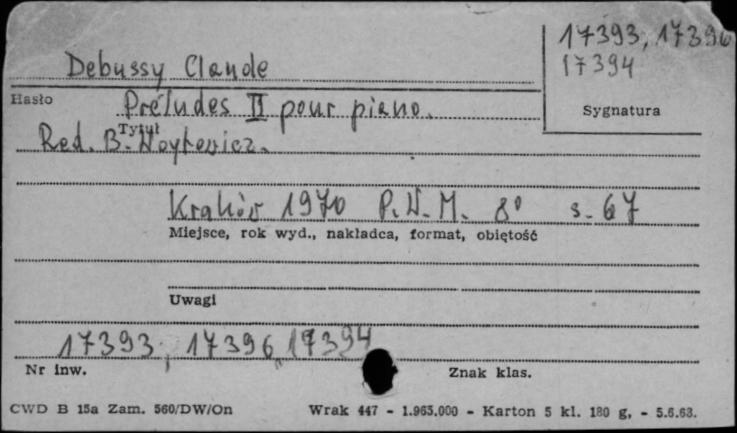 17393, 17396
17394
Debussy Claude
Hasło
Préludes II pour piano.
Sygnatura
Tytuł
Red. B. Woytowicz.
Kraków 1970 P.W.M. 8° s. 67
Miejsce, rok wyd., nakładca, format, objętość
Uwagi
17393, 17396, 17394
Nr inw.
Znak klas.
CWD B 15a Zam. 560/DW/On
Wrak 447 - 1.965.000 - Karton 5 kl. 180 g. - 5.6.68.